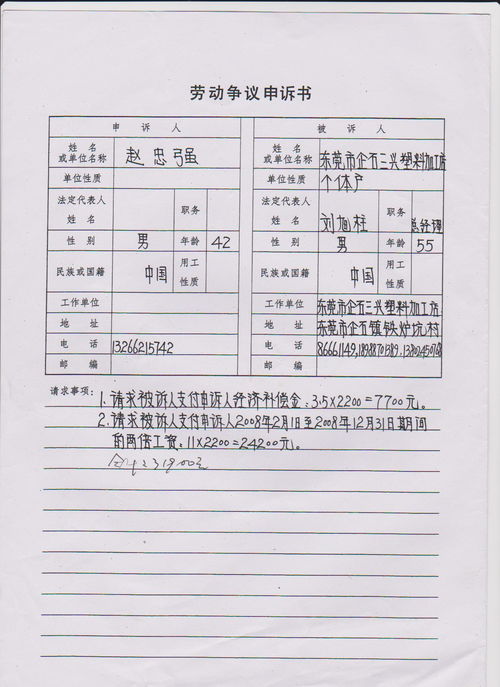 劳动争议申诉书
申诉人 被诉人
姓名或单位名称 赵忠强 姓名或单位名称 东莞市企石三兴塑料加工店
单位性质 单位性质 个体户
法定代表人姓名 职务 法定代表人姓名 刘旭柱 职务 总经理
性别 男 年龄 42 性别 男 年龄 55
民族或国籍 中国 用工性质 民族或国籍 中国 用工性质
工作单位 工作单位 东莞市企石三兴塑料加工店
地址 地址 东莞市企石镇铁炉坑村
电话 13266215742 电话 86661149,
邮编 邮编
请求事项:
1.请求被诉人支付申诉人经济补偿金:3.5×2200=7700元。
2.请求被诉人支付申诉人2008年2月1日至2008年12月31日期间
的两倍工资:11×2200=24200元。
合计:31900元